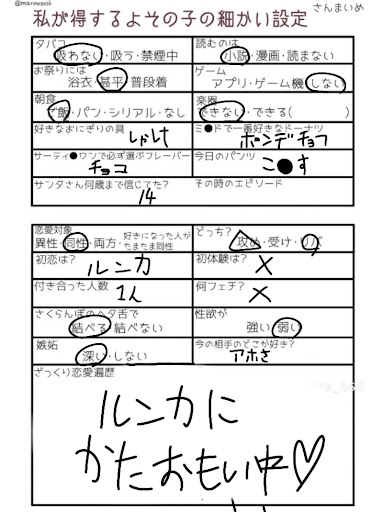 @marinosusk
さんまいめ
私が得するよその子の細かい設定
タバコ
吸わない・吸う・禁煙中
読むのは
小説・漫画・読まない
お祭りには
浴衣・甚平・普段着
ゲーム
アプリ・ゲーム機・しない
朝食
ご飯・パン・シリアル・なし
楽器
できない・できる( )
好きなおにぎりの具
しゃけ
ミ●ドで一番好きなドーナツ
ポンデチョコ
サーティ●ワンで必ず選ぶフレーバー
チョコ
今日のパンツ
こ●す
サンタさん何歳まで信じてた?
14
その時のエピソード
恋愛対象
異性・同性・両方・好きになった人が
たまたま同性
どっち?
攻め・受け・リバ
初恋は?
ルンカ
初体験は?
×
付き合った人数
1人
何フェチ?
×
さくらんぼのヘタ舌で
結べる・結べない
性欲が
強い・弱い
嫉妬
深い・しない
今の相手のどこが好き?
アホさ
ざっくり恋愛遍歴
ルンカに
かたおもい中♡